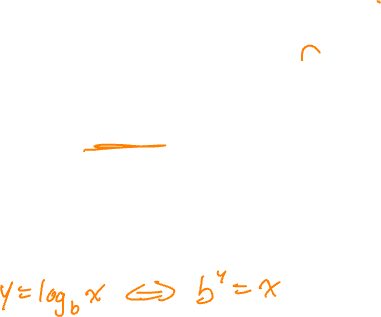 y = log_b x ⟺ b^y = x